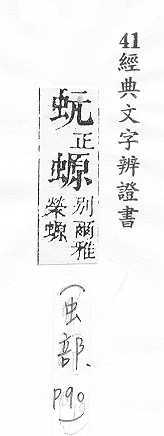 41 經典文字辨證書
蚖正螈別爾雅
榮螈
(虫部. P90)